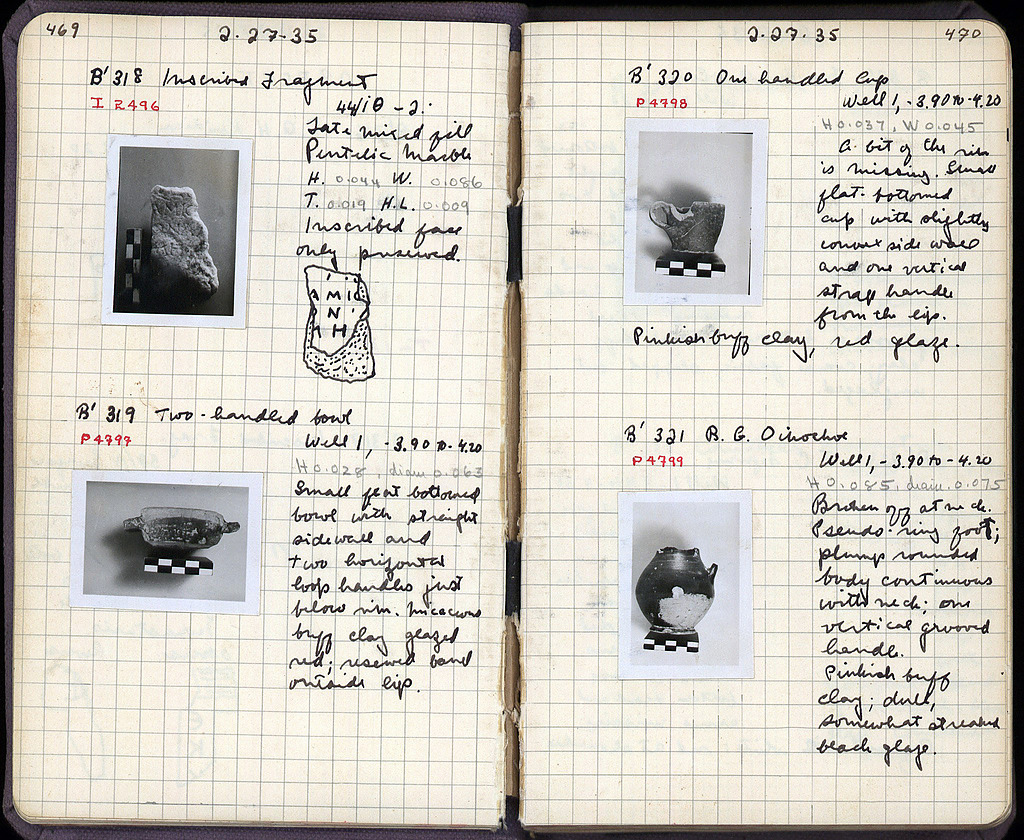 469
2-27-35
B' 318 Inscribed Fragment
I 2496
44/ΙΘ - 2:
Late mixed fill
Pentelic Marble
H. 0.044 W. 0.086
T. 0.019 H.L. 0.009
Inscribed face
only preserved.
B' 319 Two-handled bowl
P 4797
Well 1, -3.90 to -4.20
H 0.028, diam 0.063
Small flat bottomed
bowl with straight
sidewall and
two horizontal
loop handles just
below rim. Micaceous
buff clay glazed
red; reserved band
outside lip.
2-27-35
470
B' 320 One handled Cup
P 4798
Well 1, -3.90 to -4.20
H 0.037, W 0.045
A bit of the rim
is missing. Small
flat-bottomed
cup with slightly
convex side wall
and one vertical
strap handle
from the lip.
Pinkish buff clay, red glaze.
B' 321 B. G. Oinochoe
P 4799
Well 1, -3.90 to -4.20
H 0.085, diam. 0.075
Broken off at neck.
Pseudo-ring foot;
plump rounded
body continuous
with neck; one
vertical grooved
handle.
Pinkish buff
clay; dull,
somewhat streaked
black glaze.